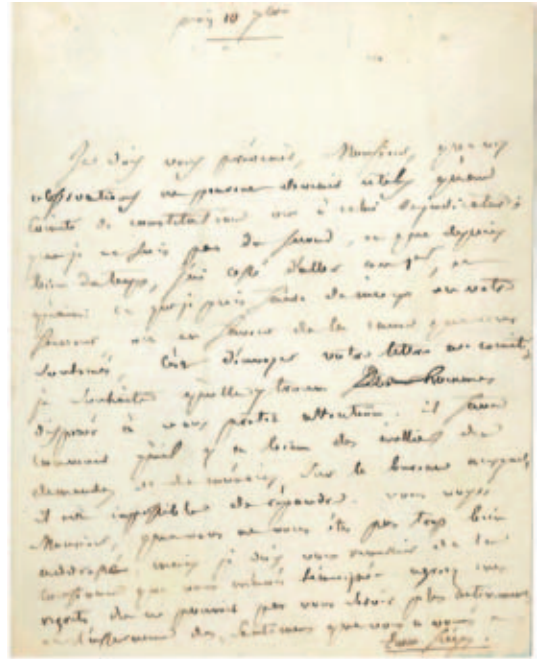 paris 10 7bre
Je dois vous prévenir, Monsieur, que vos
observations ne peuvent devenir utiles qu'au
Comité de constitution ou à celui de judicature;
que je ne suis pas du second, et que depuis
bien du temps, j'ai cessé d'aller au 1er, en
quant à ce que je puis faire de mieux en votre
faveur ou en faveur de la cause que vous
soutenés, c'est d'envoyer votre lettre au comité,
je souhaite qu'elle y trouve des hommes
disposés à vous prêter attention. il faut
convenir qu'il y a bien des milliers de
demandes et de mémoires, sur le bureau auxquels
il est impossible de répondre. vous voyez
Monsieur, que vous ne vous êtes pas trop bien
addressé mais je dois vous remercier de la
confiance que vous m'avés témoignée agréez mes
regrets de ne pouvoir pas vous servir plus
des sentimens que vous a voués